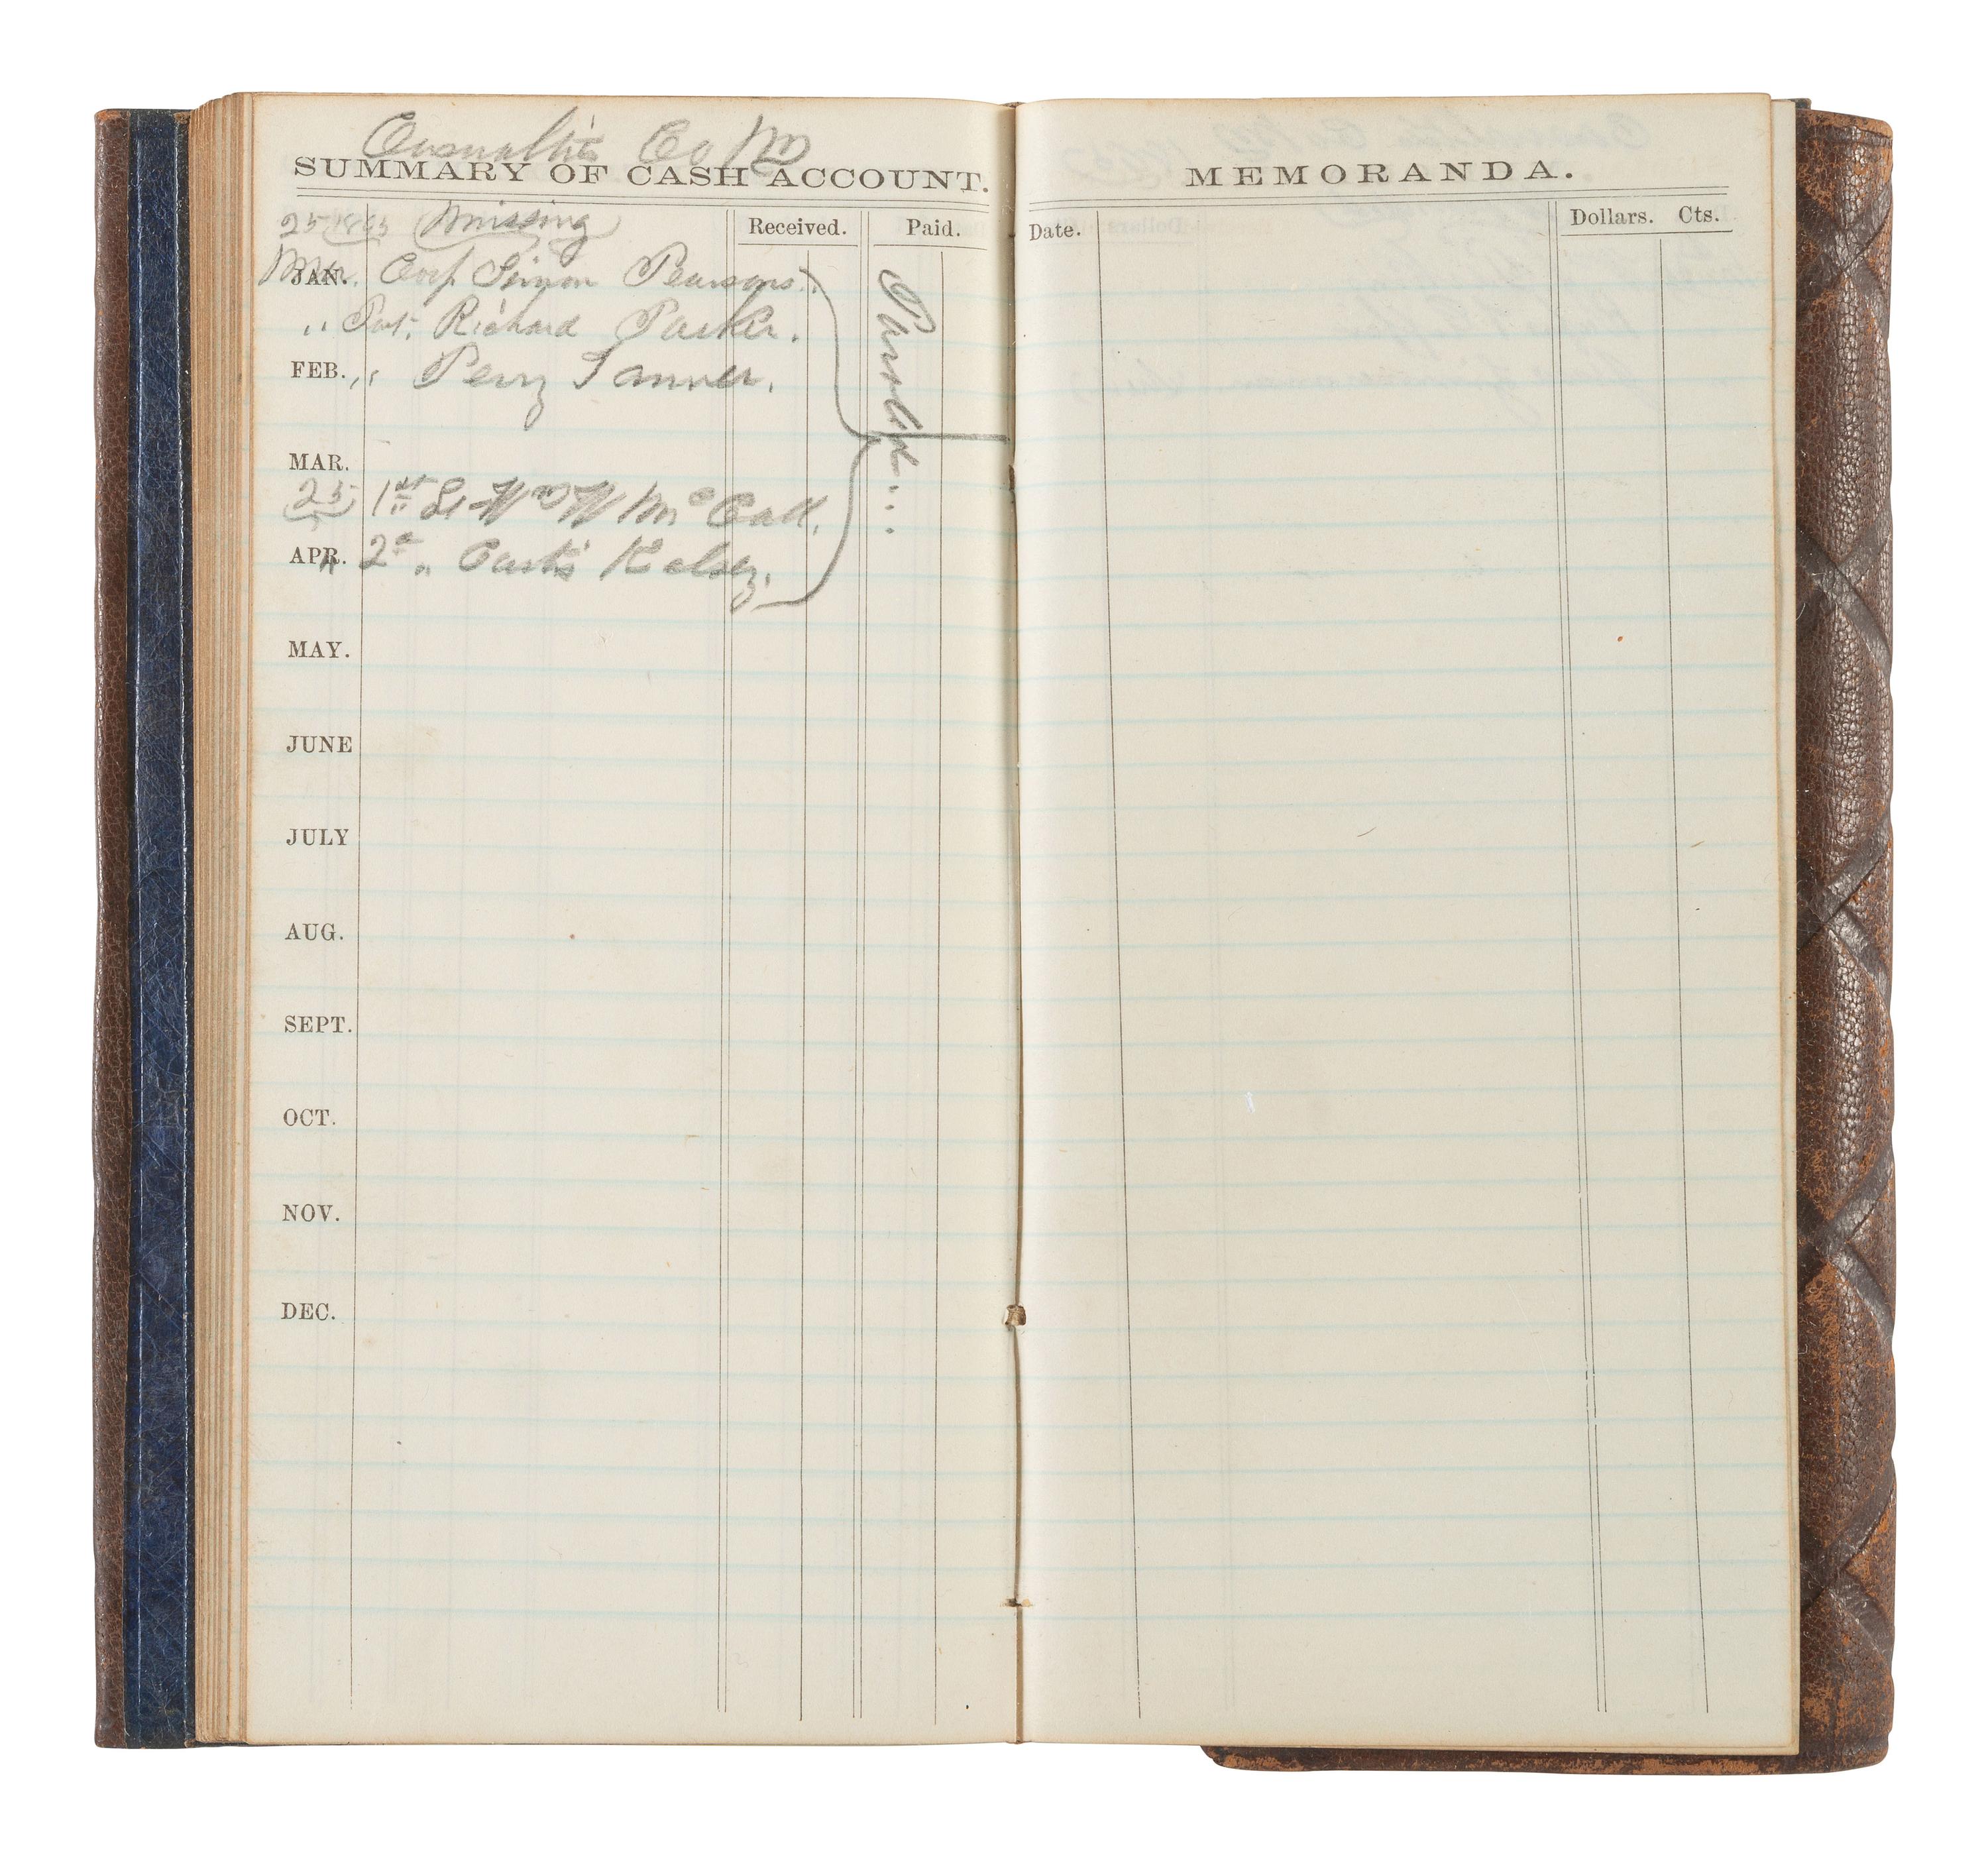 Casualties Co M
SUMMARY OF CASH ACCOUNT.
25 1865 Missing
Received. Paid.
Mar. JAN. Corp. Simon Pearsons.
" Pvt. Richard Parker.
FEB. " " Perry Tanner.
Paroled
MAR.
25 1st Lt Wm W Mc Call.
APR. " 2d " Curtis Kelsey.
MAY.
JUNE
JULY
AUG.
SEPT.
OCT.
NOV.
DEC.
MEMORANDA.
Date. Dollars. Cts.